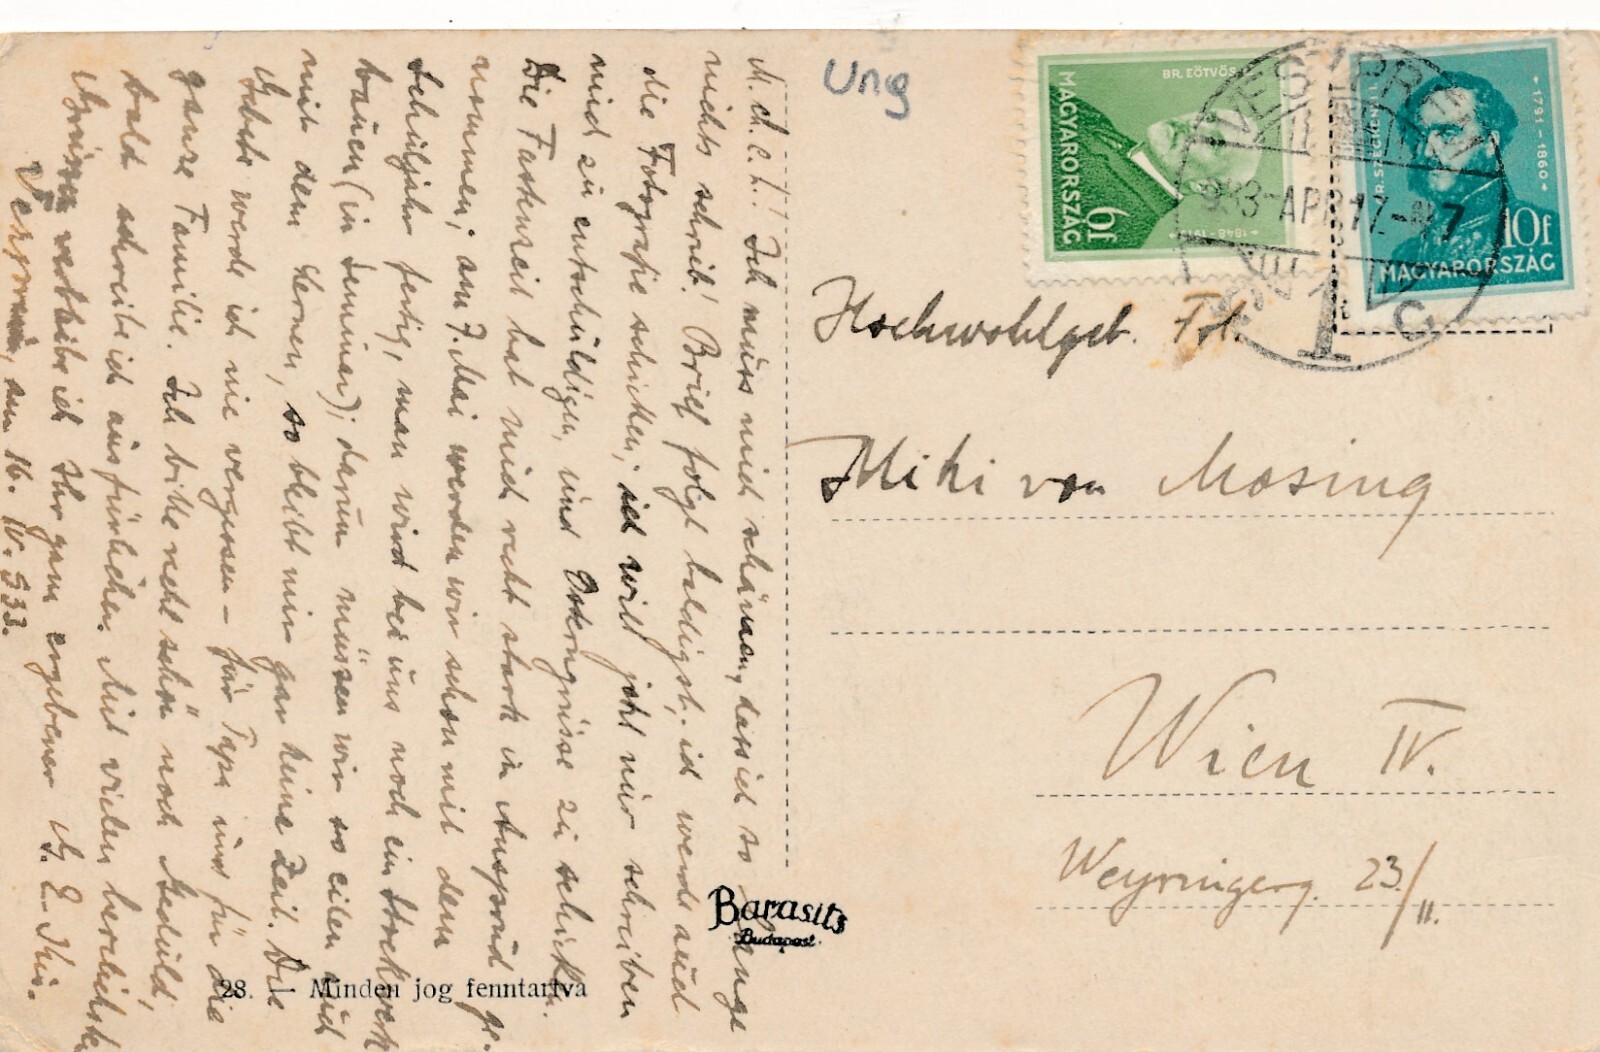 M. ch. c. L.! Ich muss mich schämen, dass ich so lange
nichts schrieb! Brief folgt baldigst; ich werde auch
die Fotografie schicken; ich will jetzt nur schreiben
mich zu entschuldigen, und Ostergrüsse zu schicken.
Die Fastenzeit hat mich recht stark in Anspruch ge-
nommen; am 7. Mai werden wir schon mit dem
Schuljahr fertig, man wird bei uns noch ein Stockwerk
bauen (in Seminar); darum müssen wir so eilen auch
mit dem Lernen, so bleibt mir gar keine Zeit. Die
Gebete werde ich nie vergessen – für Papa und für die
ganze Familie. Ich bitte recht schön noch Geduld,
bald schreibe ich ausfürlicher. Mit vielen herzlichsten
Grüssen verbleibe ich Ihr ganz ergebener
Veszprém, am 16. IV. 933.
28. — Minden jog fenntartva
Barasits
Budapest
Ung
BR. EÖTVÖS
MAGYARORSZÁG
6f
1791-1860
10f
MAGYARORSZÁG
VESZPRÉM
933-APR 17.
Hochwohlgeb.
Miki von Mosing
Wien IV.
Weyringerg. 23/II.